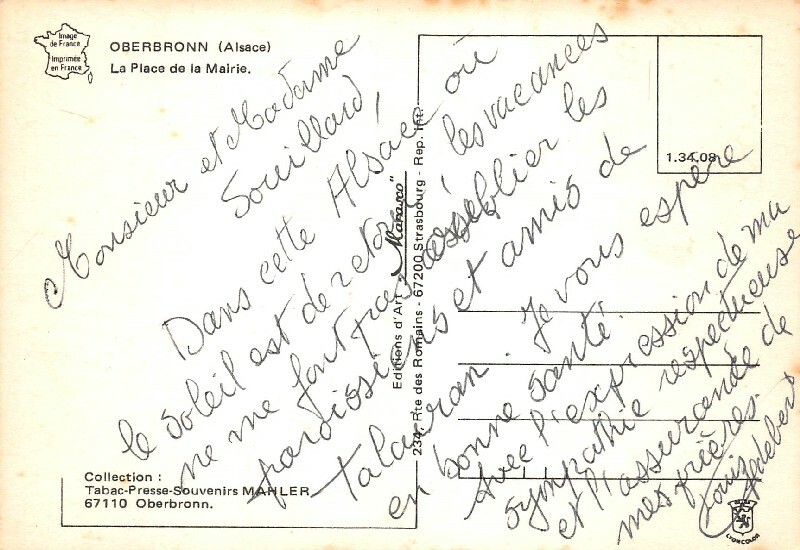 Image
de France
Imprimée
en France
OBERBRONN (Alsace)
La Place de la Mairie.
1.34.08
Monsieur et Madame
Souillard,
Dans cette Alsace où
le soleil est de retour, les vacances
ne me font pas oublier les
paroissiens et amis de
Talairan. Je vous espère
en bonne santé.
Avec l'expression de ma
sympathie respectueuse
et l'assurance de
mes prières.
Editions d'Art "Marasco"
234, Rte des Romains - 67200 Strasbourg - Rep. Int.
Collection :
Tabac-Presse-Souvenirs MAHLER
67110 Oberbronn.
LYONCOLOR